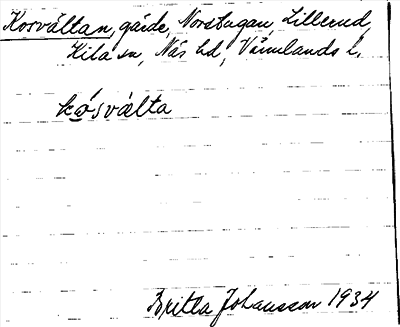 Korvältan, gärde, Norstugan, Lillerud,
Kila sn, Näs hd, Värmlands l.
kó̱sválta
Britta Johansson 1934